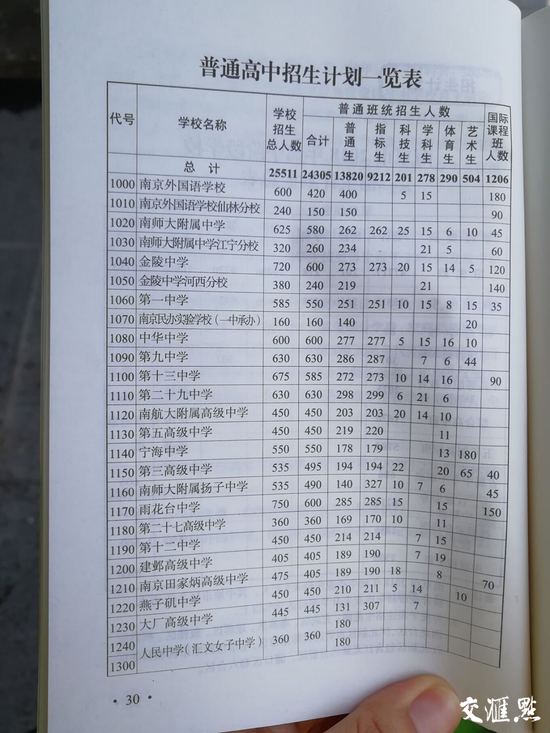 普通高中招生计划一览表
代号 学校名称 学校招生总人数 普通班统招生人数 国际课程班人数
合计 普通生 指标生 科技生 学科生 体育生 艺术生
总 计 25511 24305 13820 9212 201 278 290 504 1206
1000 南京外国语学校 600 420 400 5 15 180
1010 南京外国语学校仙林分校 240 150 150 90
1020 南师大附属中学 625 580 262 262 25 15 6 10 45
1030 南师大附属中学江宁分校 320 260 234 21 5 60
1040 金陵中学 720 600 273 273 20 15 14 5 120
1050 金陵中学河西分校 380 240 219 21 140
1060 第一中学 585 550 251 251 10 15 8 15 35
1070 南京民办实验学校(一中承办) 160 160 140 20
1080 中华中学 600 600 277 277 5 15 16 10
1090 第九中学 630 630 286 287 7 6 44
1100 第十三中学 675 585 272 273 10 14 16 90
1110 第二十九中学 630 630 298 299 6 21 6
1120 南航大附属高级中学 450 450 203 203 20 14 10
1130 第五高级中学 450 450 219 220 11
1140 宁海中学 550 550 178 179 13 180
1150 第三高级中学 535 495 194 194 22 20 65 40
1160 南师大附属扬子中学 535 490 140 327 10 7 6 45
1170 雨花台中学 750 600 285 285 15 15 150
1180 第二十七高级中学 360 360 169 170 10 11
1190 第十二中学 450 450 214 214 7 15
1200 建邺高级中学 405 405 189 190 7 19
1210 南京田家炳高级中学 475 405 189 190 18 8 70
1220 燕子矶中学 450 450 210 211 5 14 10
1230 大厂高级中学 445 445 131 307 7
1240 人民中学(汇文女子中学) 360 360 180
1300 180
· 30 ·
交汇点